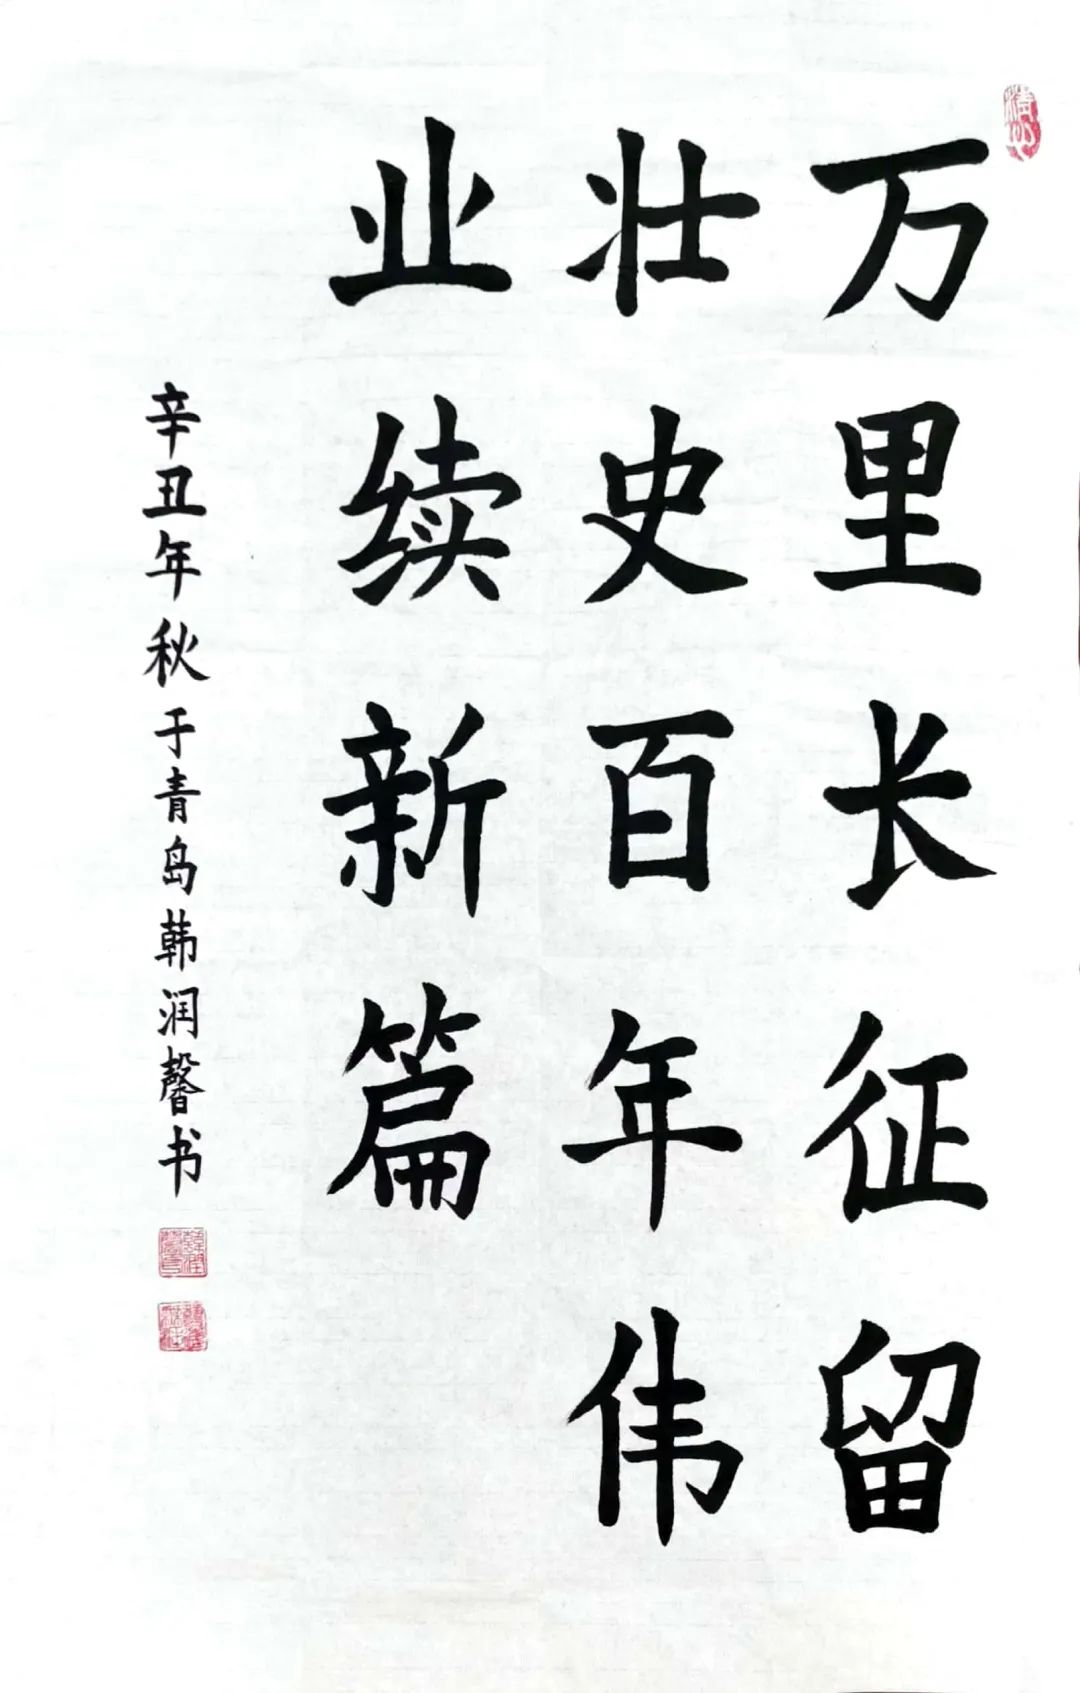 万里长征留
壮史百年伟
业续新篇
辛丑年秋于青岛韩润馨书